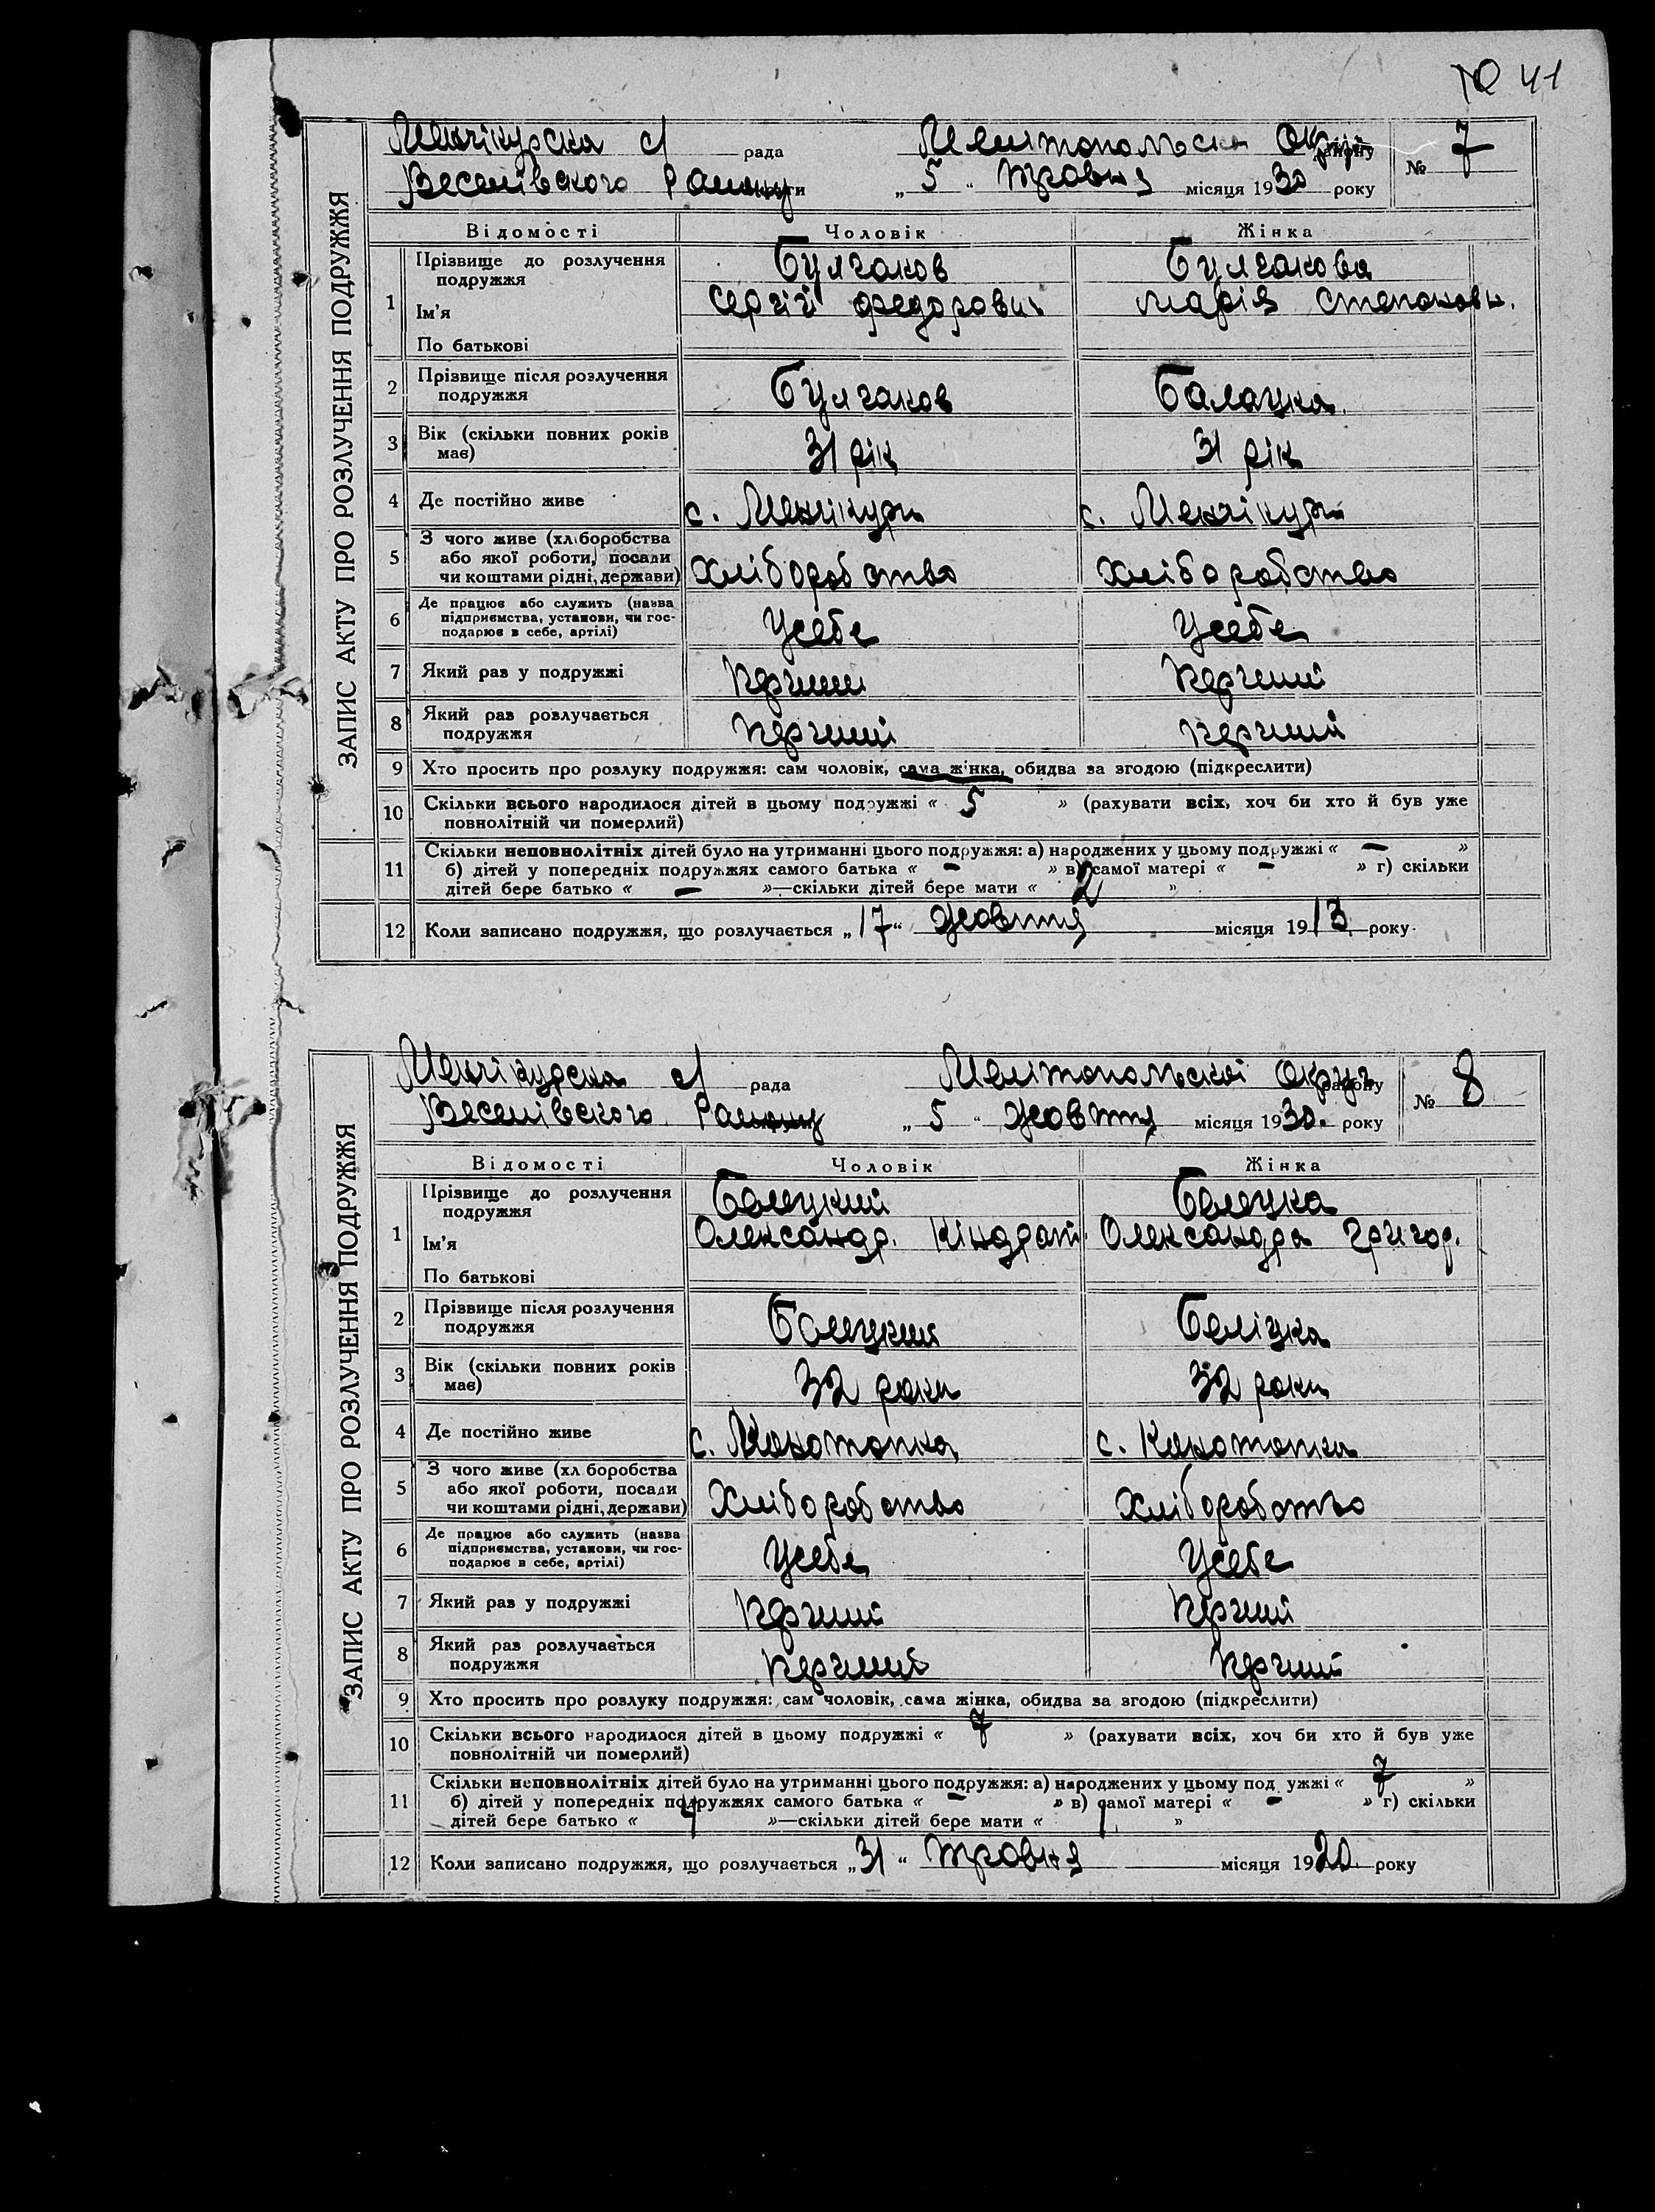 № 41
ЗАПИС АКТУ ПРО РОЗЛУЧЕННЯ ПОДРУЖЖЯ
Менчікурска с/ рада Мелітопольска Округи району № 7
Веселівского Району „ 5 “ травня місяця 1930 року
Відомості Чоловік Жінка
1 Прізвище до розлучення подружжя Булгаков Булгакова
Ім’я Сергій Федорович Марія Степановн.
По батькові
2 Прізвище після розлучення подружжя Булгаков Балацка
3 Вік (скільки повних років має) 31 рік 31 рік
4 Де постійно живе с. Менчікури с. Менчікури
5 З чого живе (хліборобства або якої роботи, посади чи коштами рідні, держави) Хліборобство Хліборобство
6 Де працює або служить (назва підприємства, установи, чи господарює в себе, артілі) Усебе Усебе
7 Який раз у подружжі Перший Перший
8 Який раз розлучається подружжя Перший Перший
9 Хто просить про розлуку подружжя: сам чоловік, сама жінка, обидва за згодою (підкреслити)
10 Скільки всього народилося дітей в цьому подружжі « 5 » (рахувати всіх, хоч би хто й був уже
повнолітній чи померлий)
11 Скільки неповнолітніх дітей було на утриманні цього подружжя: а) народжених у цьому подружжі « — »
б) дітей у попередніх подружжях самого батька « — » в) самої матері « — » г) скільки
дітей бере батько « — »—скільки дітей бере мати « 2 »
12 Коли записано подружжя, що розлучається „ 17 “ жовтня місяця 1913 року
ЗАПИС АКТУ ПРО РОЗЛУЧЕННЯ ПОДРУЖЖЯ
Менчікурска с/ рада Мелітопольскоі Округи району № 8
Веселівского Району „ 5 “ жовтня місяця 1930. року
Відомості Чоловік Жінка
1 Прізвище до розлучення подружжя Белецкий Белецка
Ім’я Олександр. Кіндрат. Олександра Григор.
По батькові
2 Прізвище після розлучення подружжя Белецкий Беліцка
3 Вік (скільки повних років має) 32 роки 32 роки
4 Де постійно живе с. с.
5 З чого живе (хліборобства або якої роботи, посади чи коштами рідні, держави) Хліборобство Хліборобство
6 Де працює або служить (назва підприємства, установи, чи господарює в себе, артілі) Усебе Усебе
7 Який раз у подружжі Перший Перший
8 Який раз розлучається подружжя Перший Перший
9 Хто просить про розлуку подружжя: сам чоловік, сама жінка, обидва за згодою (підкреслити)
10 Скільки всього народилося дітей в цьому подружжі « 7 » (рахувати всіх, хоч би хто й був уже
повнолітній чи померлий)
11 Скільки неповнолітніх дітей було на утриманні цього подружжя: а) народжених у цьому подружжі « 7 »
б) дітей у попередніх подружжях самого батька « — » в) самої матері « — » г) скільки
дітей бере батько « »—скільки дітей бере мати « »
12 Коли записано подружжя, що розлучається „ 31 “ травня місяця 1920. року